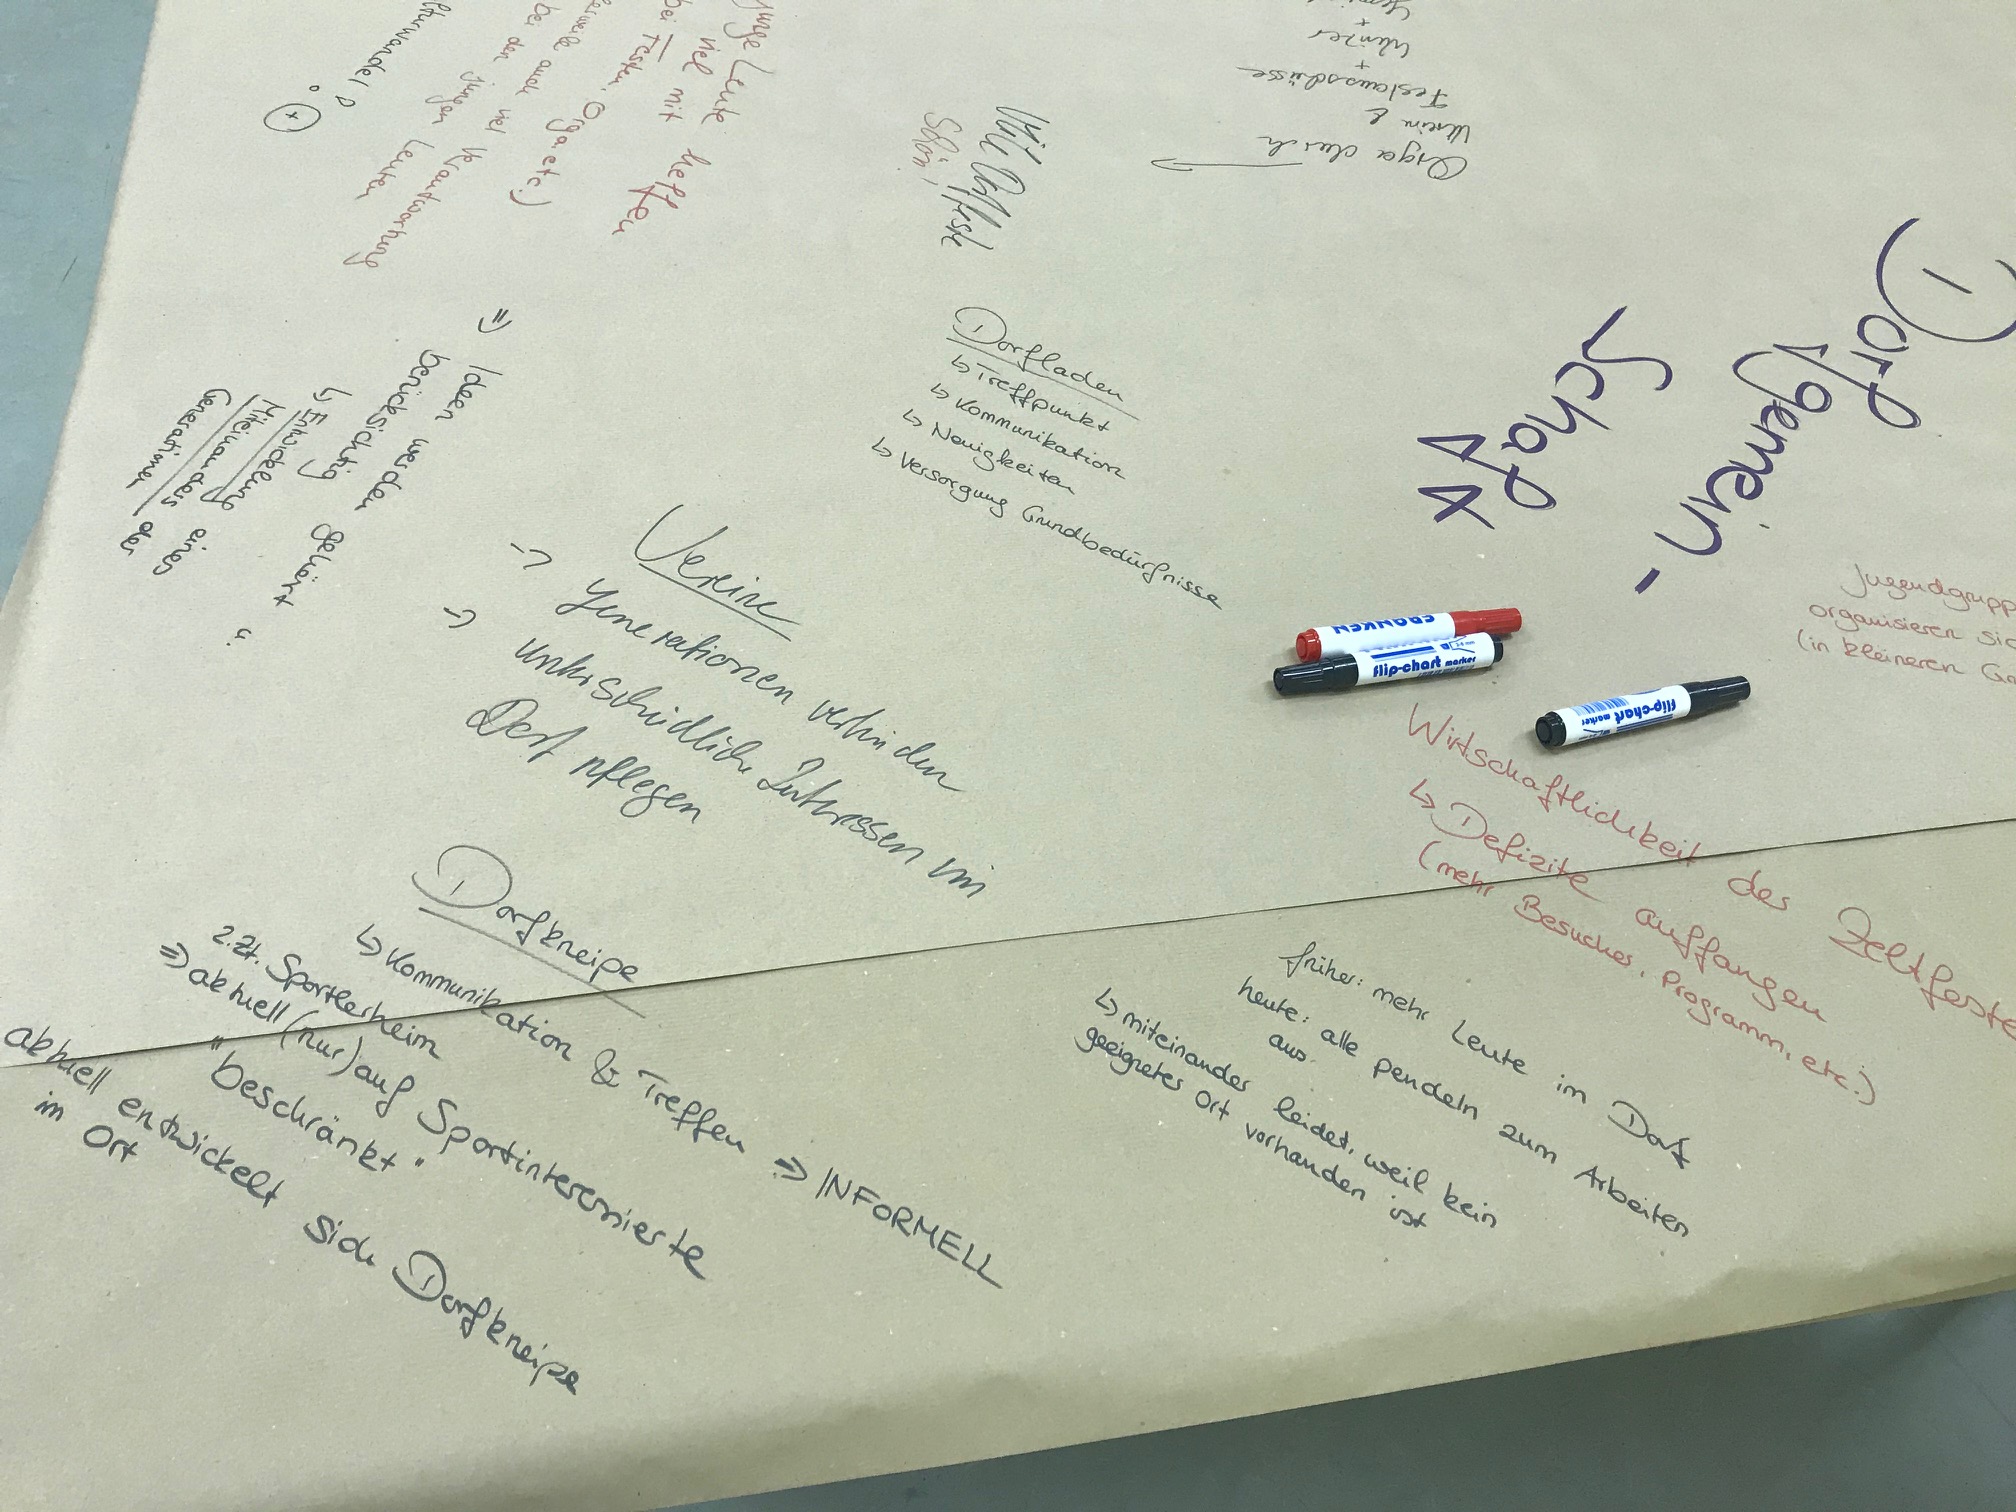 junge Leute helfen
viel mit
bei Festen, Orga etc.)
auch viel Verantwortung
bei den jungen Leuten
+
Orga durch
Vereine &
Festausschüsse
+
Winzer
+
Schön,
Dorf
gemein-
schaft
Dorfladen
↳ Treffpunkt
↳ Kommunikation
↳ Neuigkeiten
↳ Versorgung Grundbedürfnisse
⇒ Ideen werden gehört u.
berücksichtig
↳ Entwicklung eines
Miteinanders der
Generationen
Vereine
↳ generationen verbinden
↳ unterschiedliche Interessen im
Dorf pflegen
FRANKEN
flip-chart marker
flip-chart marker
Jugendgrupp
organisieren sic
(in kleineren
Wirtschaftlichkeit des Zeltfeste
↳ Defizite auffangen
(mehr Besucher, Programm, etc.)
Dorfkneipe
↳ Kommunikation & Treffen ⇒ INFORMELL
z.Zt. Sportlerheim
⇒ aktuell (nur) auf Sportinteressierte
"beschränkt"
aktuell entwickelt sich Dorfkneipe
im Ort
früher: mehr Leute im Dorf
heute: alle pendeln zum Arbeiten
aus.
↳ miteinander leidet, weil kein
geeigneter Ort vorhanden ist